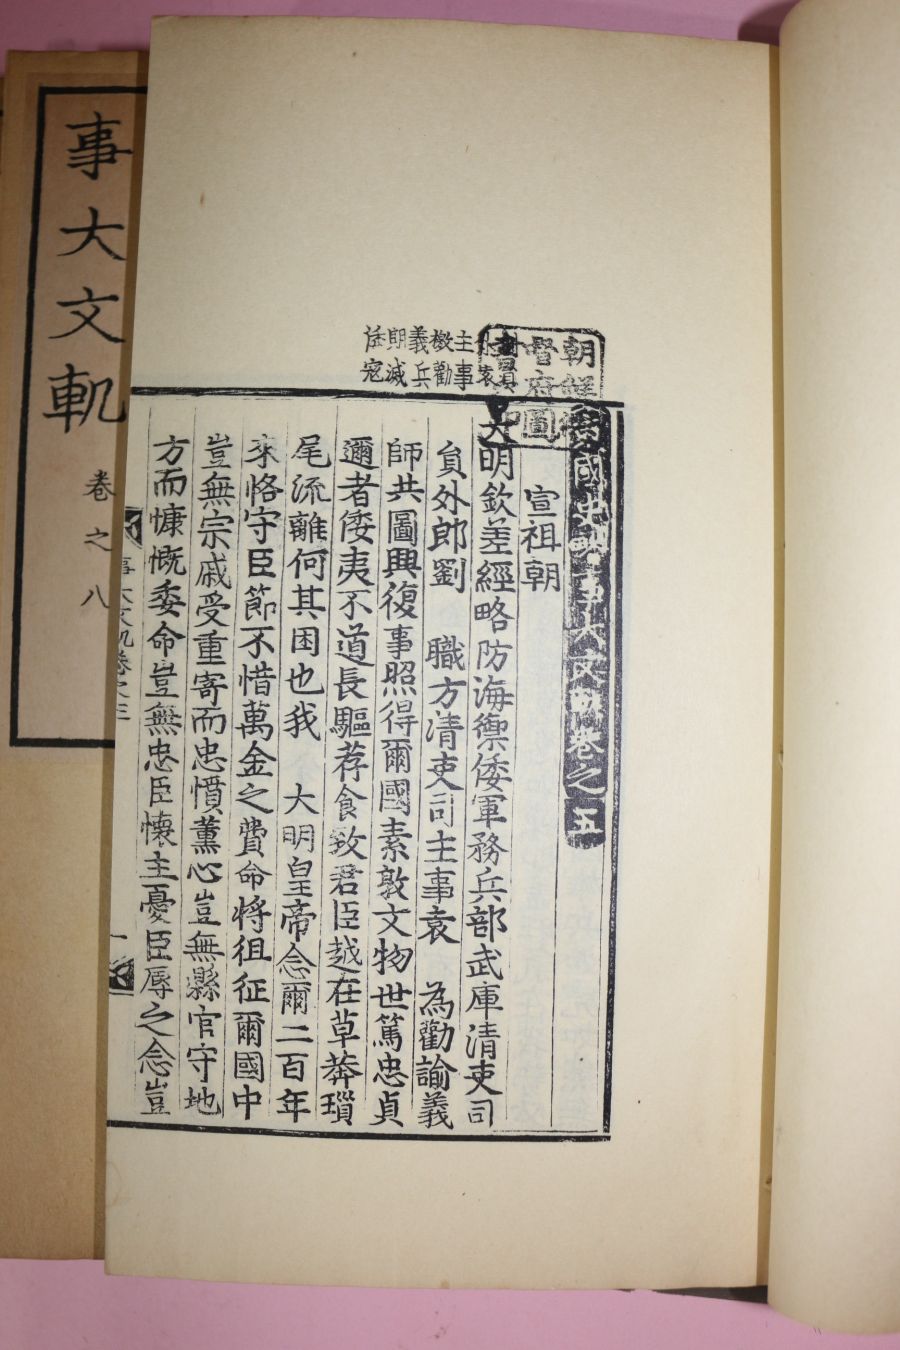 朝鮮總
督府圖
主事
檄勸
義兵
期滅
寇
事大文軌卷之五
宣祖朝
大明欽差經略防海禦倭軍務兵部武庫清吏司
貟外郎劉　職方清吏司主事袁　為勸諭義
師共圖興復事照得爾國素敦文物世篤忠貞
邇者倭夷不道長驅荐食致君臣越在草莽瑣
尾流離何其困也我　大明皇帝念爾二百年
來恪守臣節不惜萬金之費命將徂征爾國中
豈無宗戚受重寄而忠憤薰心豈無縣官守地
方而慷慨委命豈無忠臣懷主憂臣辱之念豈
事大文軌
卷之八